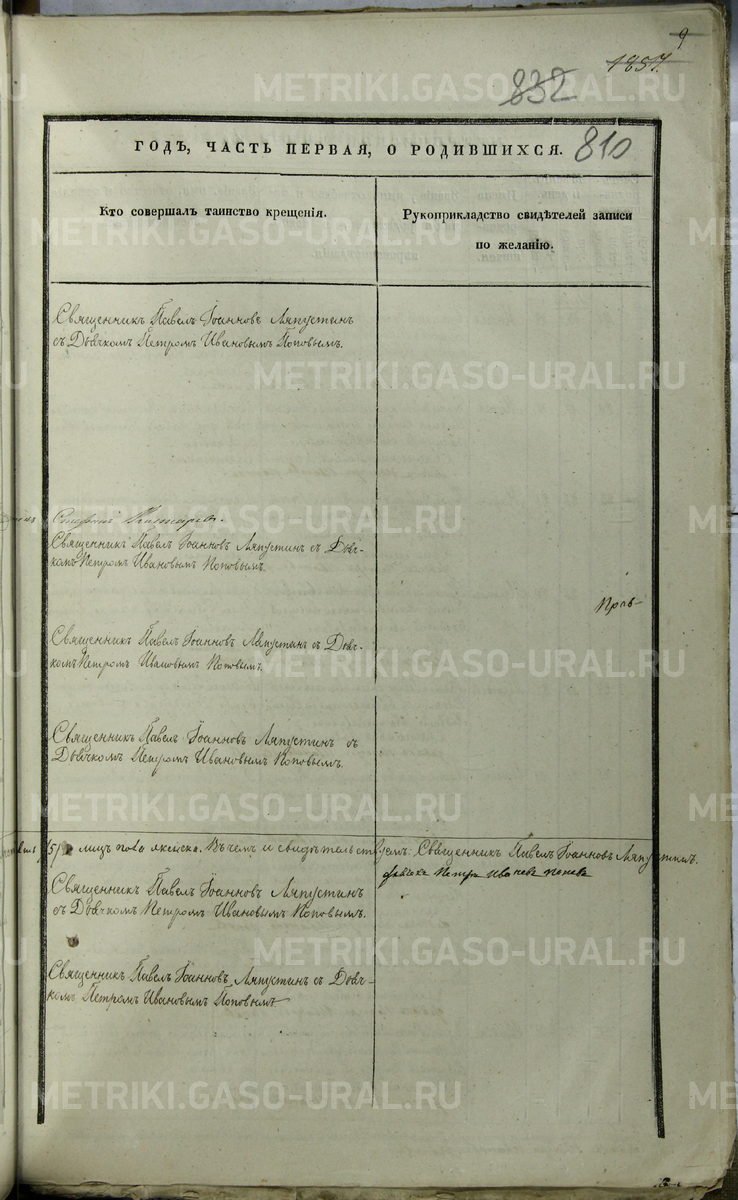 9
1857.
832
ГОДЪ, ЧАСТЬ ПЕРВАЯ, О РОДИВШИХСЯ. 810
Кто совершалъ таинство крещенія.
Рукоприкладство свидѣтелей записи
по желанію.
Священникъ Павелъ Іоанновъ Ляпустинъ
съ Дьячкомъ Петромъ Ивановымъ Поповымъ.
Священникъ Павелъ Іоанновъ Ляпустинъ съ Дьяч-
комъ Петромъ Ивановымъ Поповымъ.
Священникъ Павелъ Іоанновъ Ляпустинъ съ Дьяч-
комъ Петромъ Ивановымъ Поповымъ.
Священникъ Павелъ Іоанновъ Ляпустинъ съ
Дьячкомъ Петромъ Ивановымъ Поповымъ.
/5/ лицъ пола женска. Въ чемъ и свидѣтельствуемъ: Священникъ Павелъ Іоанновъ Ляпустинъ.
Священникъ Павелъ Іоанновъ Ляпустинъ
съ Дьячкомъ Петромъ Ивановымъ Поповымъ.
Священникъ Павелъ Іоанновъ Ляпустинъ съ Дьяч-
комъ Петромъ Ивановымъ Поповымъ
METRIKI.GASO-URAL.RU